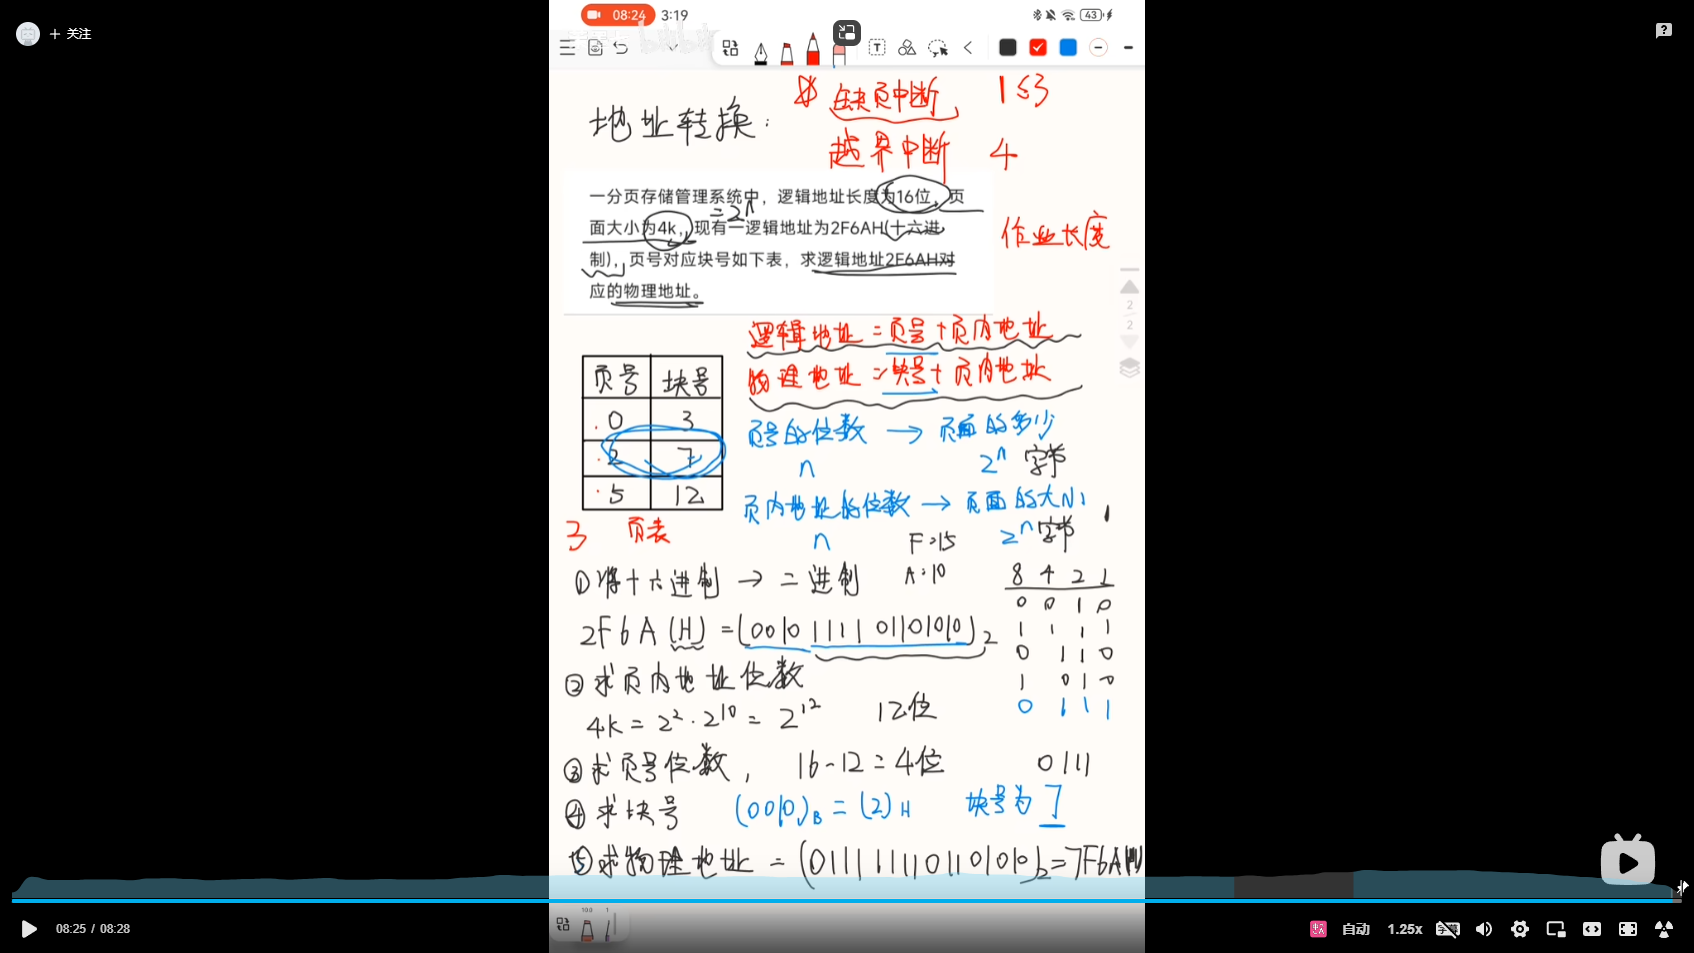 08:24 3:19
43
+ 关注
缺页中断 1 5 3
地址转换:
越界中断 4
一分页存储管理系统中，逻辑地址长度为16位，页
=2ⁿ
面大小为4k，现有一逻辑地址为2F6AH(十六进
作业长度
制)，页号对应块号如下表，求逻辑地址2F6AH对
应的物理地址。
2
2
逻辑地址=页号+页内地址
物理地址=块号+页内地址
页号 块号
0 3
2 7
5 12
3 页表
页号的位数 → 页面的多少
n 2ⁿ 字节
页内地址的位数 → 页面的大小
n 2ⁿ 字节
F:15
A:10
8 4 2 1
0 0 1 0
1 1 1 1
0 1 1 0
1 0 1 0
0 1 1 1
①将十六进制 → 二进制
2F6A(H) = (0010111101101010)₂
②求页内地址位数
4k = 2²·2¹⁰ = 2¹² 12位
③求页号位数, 16-12=4位 0111
④求块号 (0010)B = (2)H 块号为7
⑤求物理地址 = (0111111101101010)₂=7F6A(H)
10.0 1
08:25 / 08:28
自动 1.25x